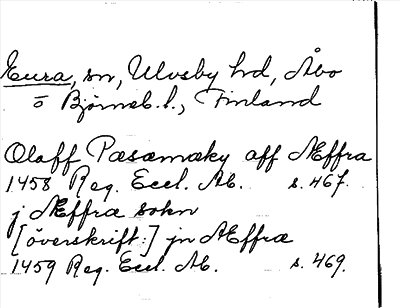 Eura, sn, Ulvsby hd, Åbo
o Björneb. l., Finland
Olaff Pæsæmæky aff Æffra
1458 Reg. Eccl. Ab. s. 467.
j Æffra sokn
[överskrift:] jn Æffra
1459 Reg. Eccl. Ab. s. 469.